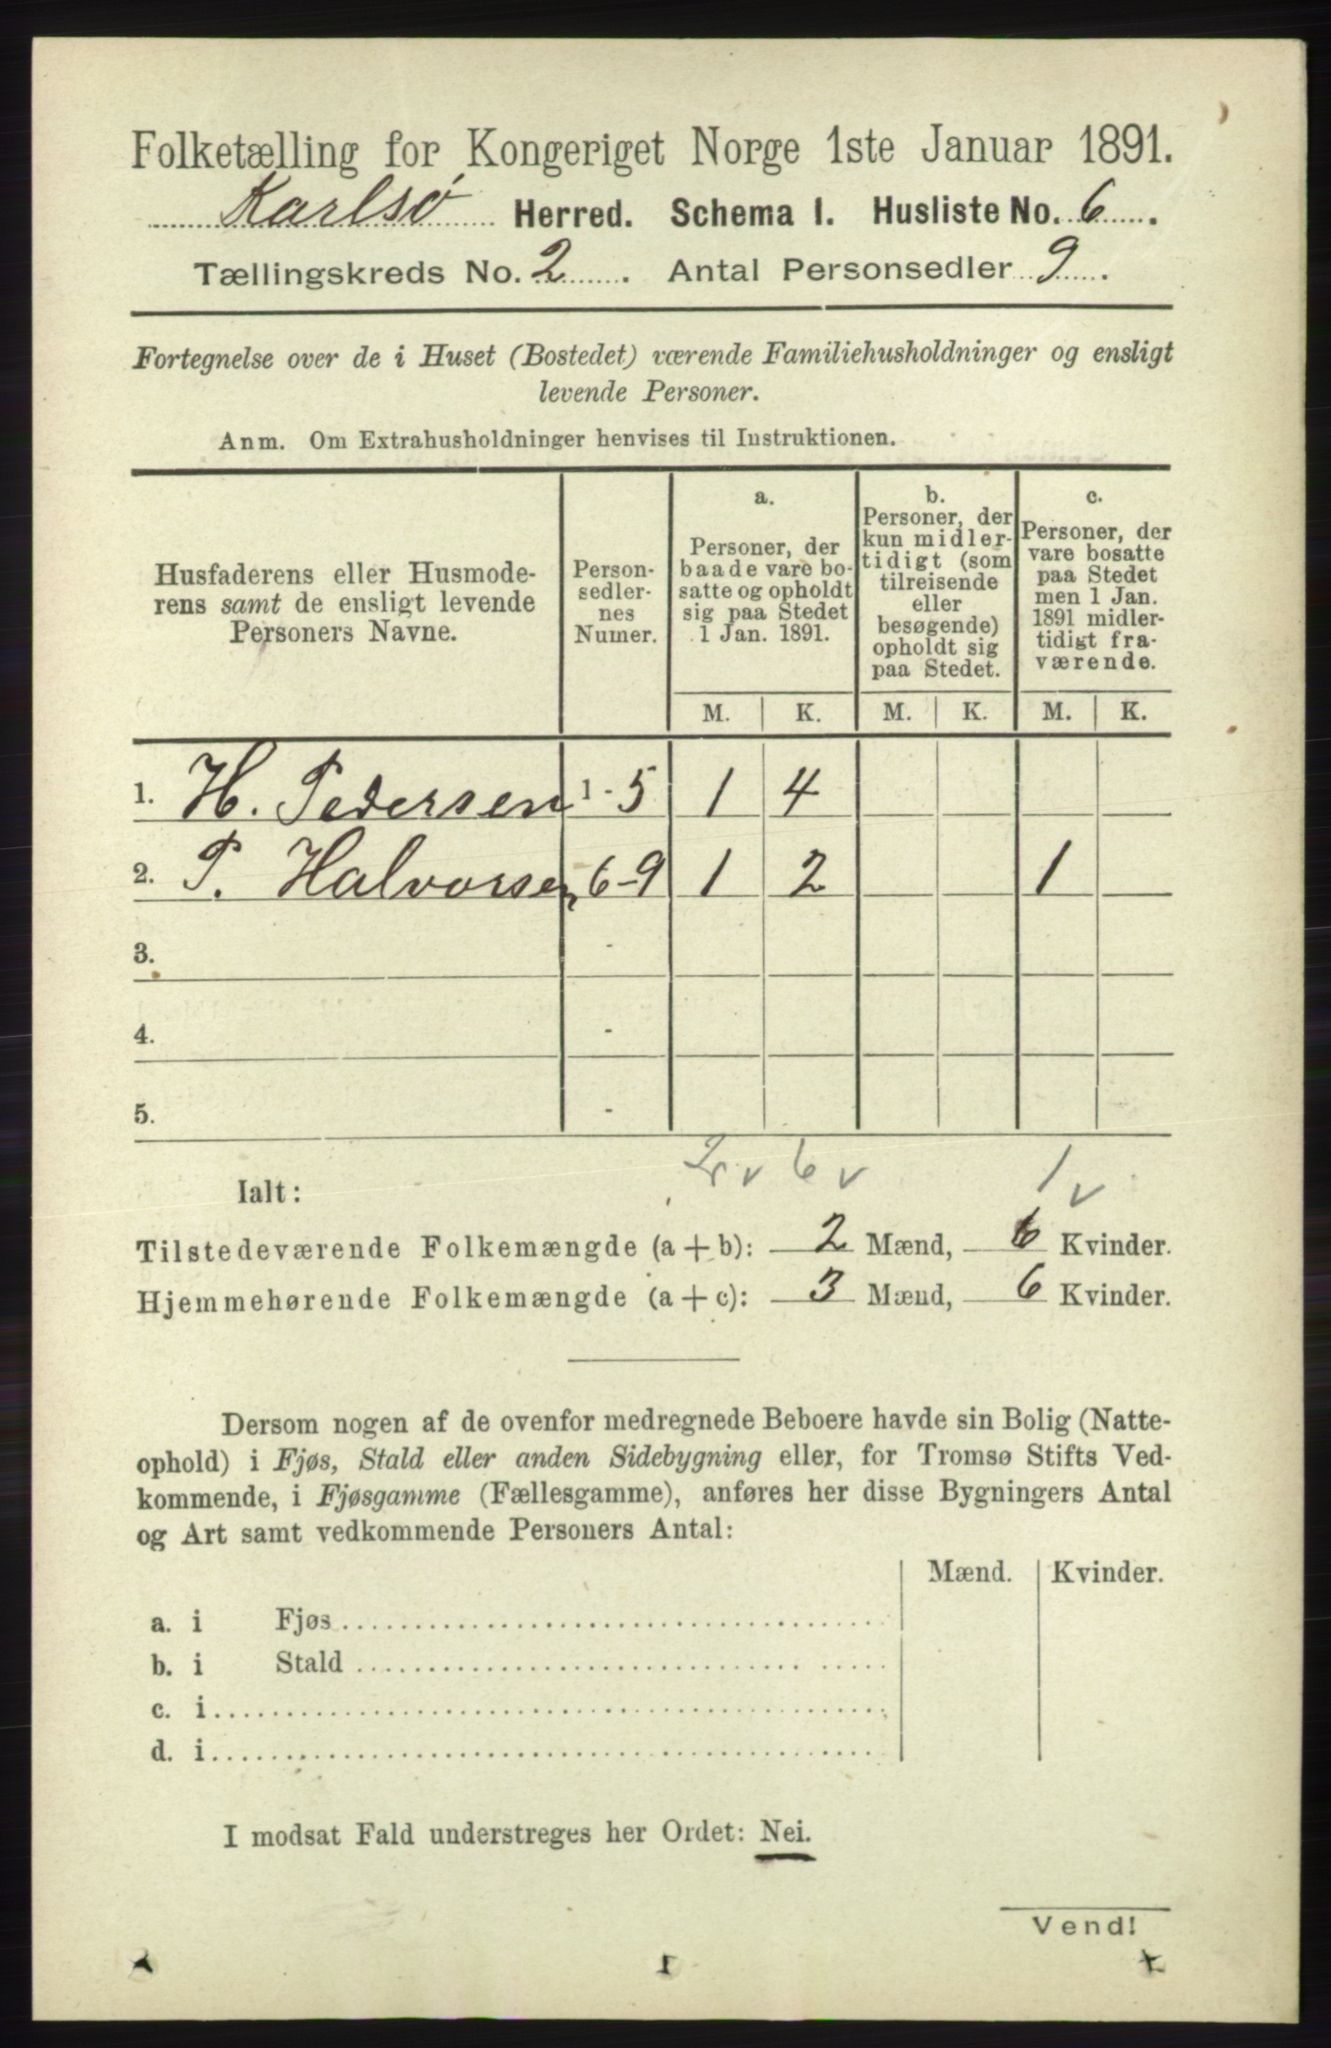 Folketælling for Kongeriget Norge 1ste Januar 1891.
Karlsø Herred. Schema I. Husliste No. 6.
Tællingskreds No. 2. Antal Personsedler 9.
Fortegnelse over de i Huset (Bostedet) værende Familiehusholdninger og ensligt
levende Personer.
Anm. Om Extrahusholdninger henvises til Instruktionen.
Husfaderens eller Husmode-
rens samt de ensligt levende
Personers Navne.
Person-
sedler-
nes
Numer.
a.
Personer, der
baade vare bo-
satte og opholdt
sig paa Stedet
1 Jan. 1891.
b.
Personer, der
kun midler-
tidigt (som
tilreisende
eller
besøgende)
opholdt sig
paa Stedet.
c.
Personer, der
vare bosatte
paa Stedet
men 1 Jan.
1891 midler-
tidigt fra-
værende.
M. K. M. K. M. K.
1. H. Pedersen 1-5 1 4
2. P. Halvorsen 6-9 1 2 1
3. -
4. -
5. -
2 v 6 v 1 v
Ialt:
Tilstedeværende Folkemængde (a+b): 2 Mænd, 6 Kvinder.
Hjemmehørende Folkemængde (a+c): 3 Mænd, 6 Kvinder.
Dersom nogen af de ovenfor medregnede Beboere havde sin Bolig (Natte-
ophold) i Fjøs, Stald eller anden Sidebygning eller, for Tromsø Stifts Ved-
kommende, i Fjøsgamme (Fællesgamme), anføres her disse Bygningers Antal
og Art samt vedkommende Personers Antal:
Mænd. Kvinder.
a. i Fjøs
b. i Stald
c. i
d. i
I modsat Fald understreges her Ordet: Nei.
Vend!
1